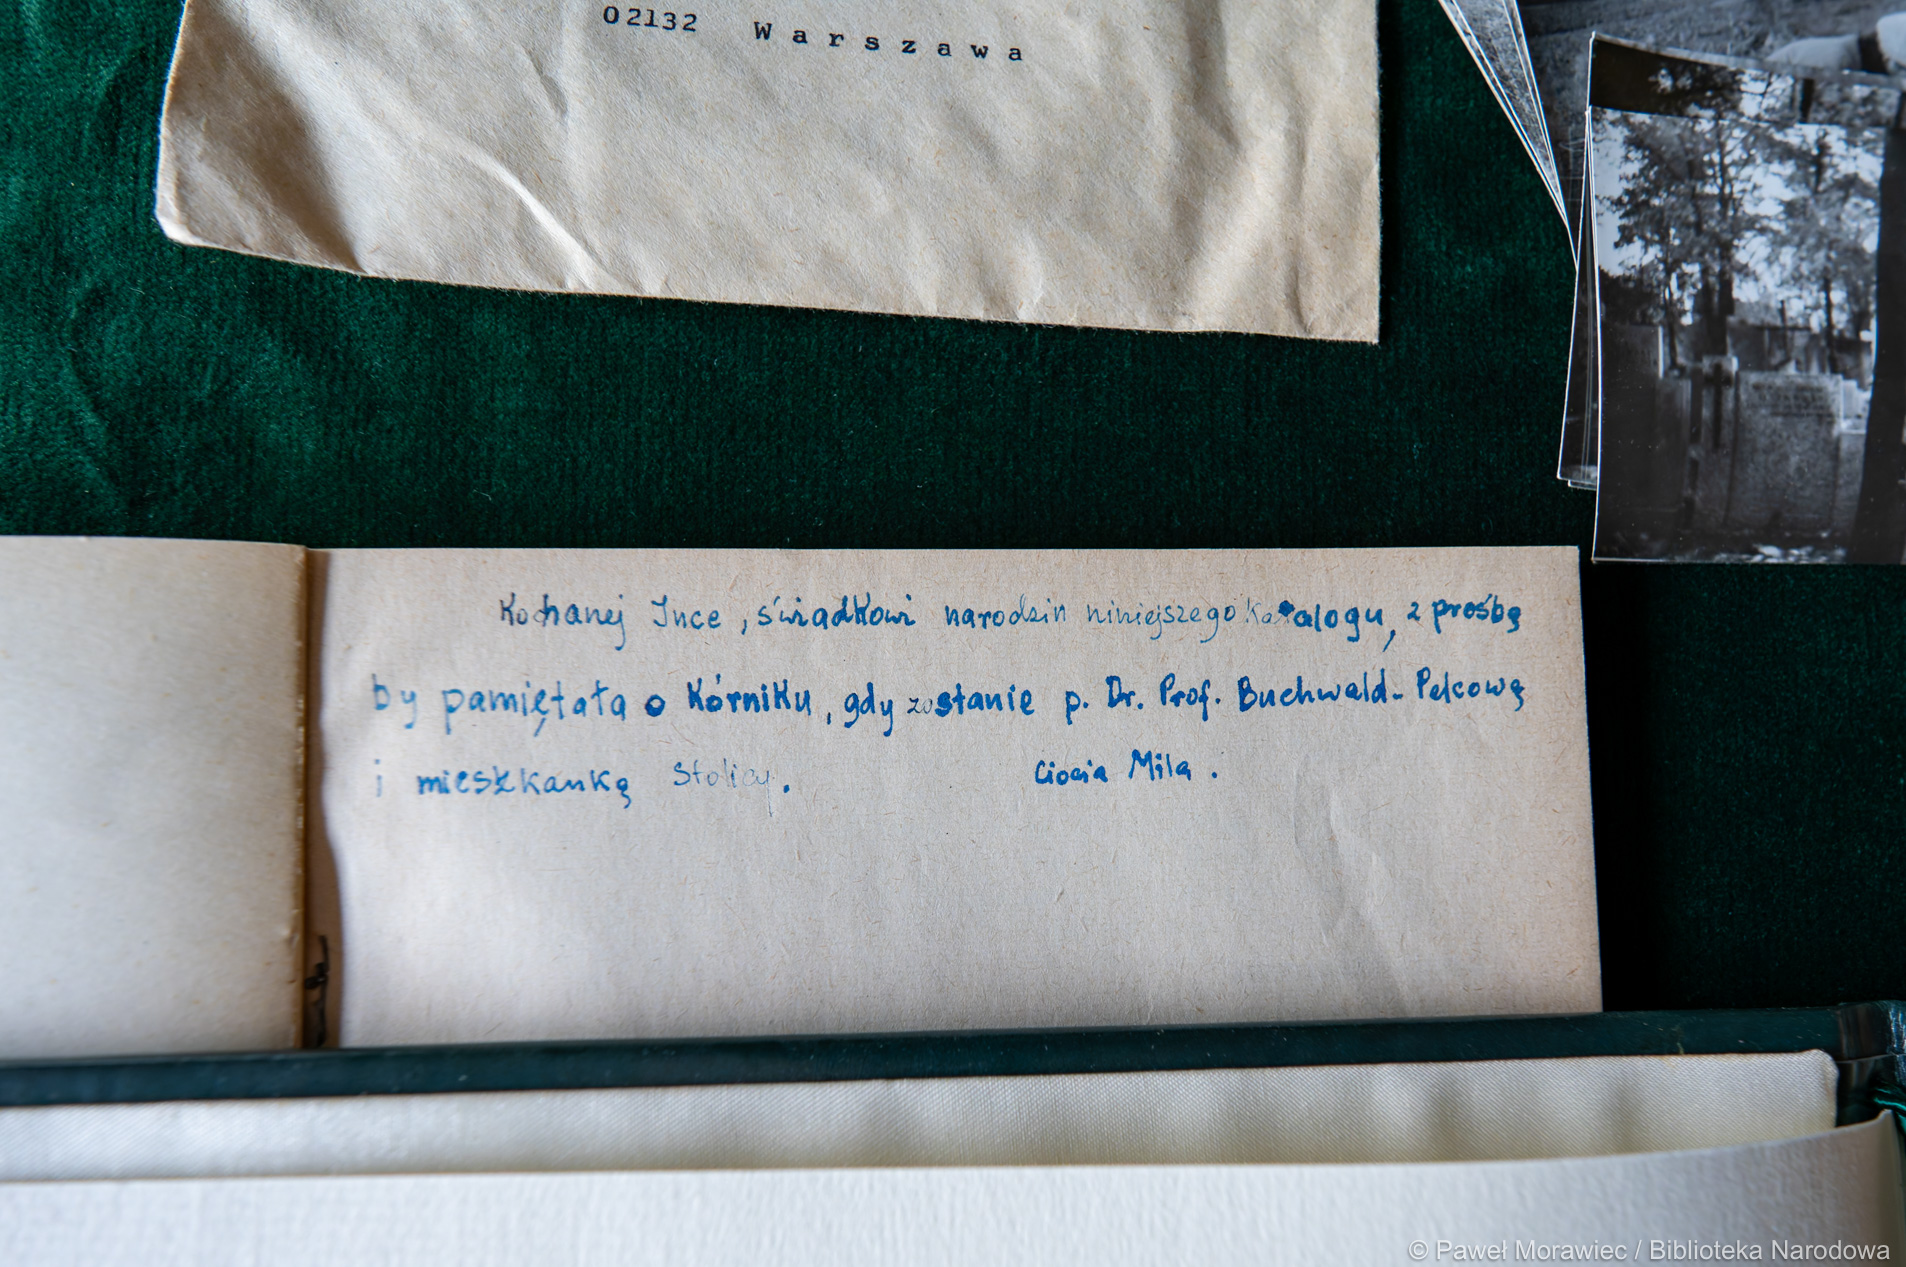 02132 Warszawa
Kochanej Ince, świadkowi narodzin niniejszego Katalogu, z prośbą
by pamiętała o Kórniku, gdy zostanie p. Dr. Prof. Buchwald-Pelcową
i mieszkanką Stolicy. Ciocia Mila.
© Paweł Morawiec / Biblioteka Narodowa